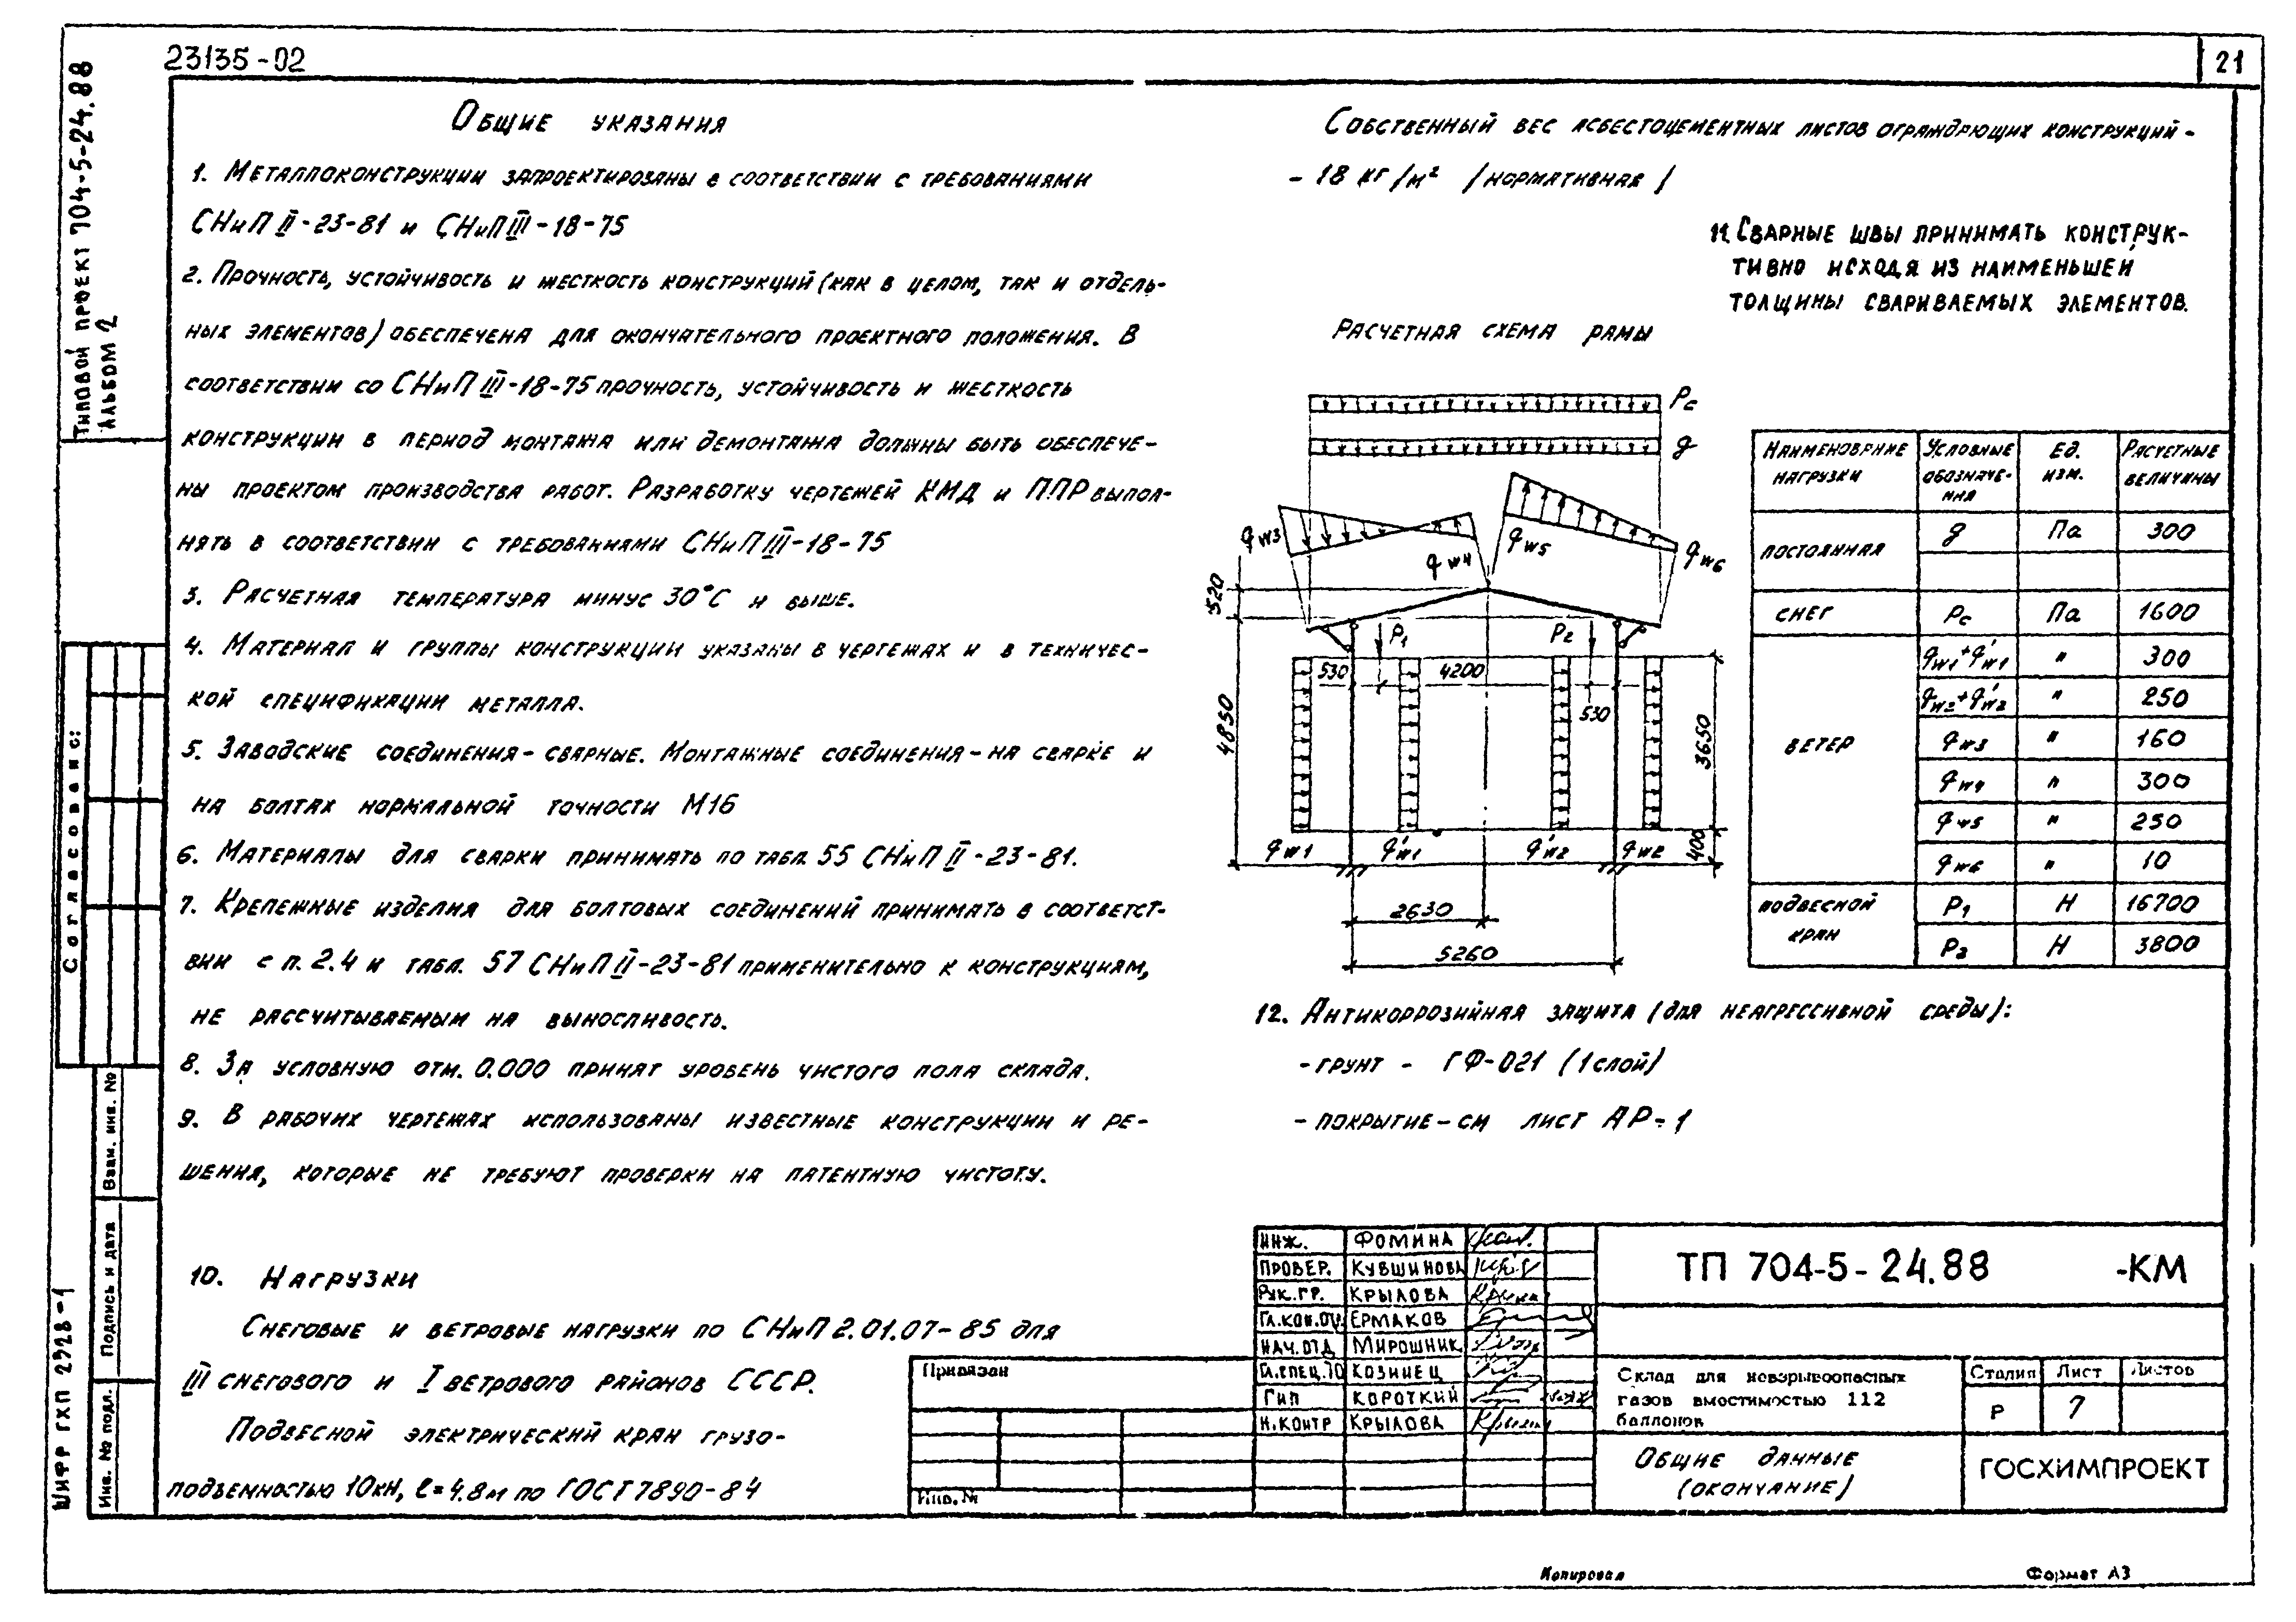 23135-02
21
Типовой проект 704-5-24.88
Альбом 2
Общие указания
1. Металлоконструкции запроектированы в соответствии с требованиями
СНиП II-23-81 и СНиП III-18-75
2. Прочность, устойчивость и жесткость конструкций (как в целом, так и отдель-
ных элементов) обеспечена для окончательного проектного положения. В
соответствии со СНиП III-18-75 прочность, устойчивость и жесткость
конструкции в период монтажа или демонтажа должны быть обеспече-
ны проектом производства работ. Разработку чертежей КМД и ППР выпол-
нять в соответствии с требованиями СНиП III-18-75
3. Расчетная температура минус 30°С и выше.
4. Материал и группы конструкции указаны в чертежах и в техничес-
кой спецификации металла.
5. Заводские соединения - сварные. Монтажные соединения - на сварке и
на болтах нормальной точности М16
6. Материалы для сварки принимать по табл. 55 СНиП II-23-81.
7. Крепежные изделия для болтовых соединений принимать в соответст-
вии с п. 2.4 и табл. 57 СНиП II-23-81 применительно к конструкциям,
не рассчитываемым на выносливость.
8. За условную отм. 0.000 принят уровень чистого пола склада.
9. В рабочих чертежах использованы известные конструкции и ре-
шения, которые не требуют проверки на патентную чистоту.
10. Нагрузки
Снеговые и ветровые нагрузки по СНиП 2.01.07-85 для
III снегового и I ветрового районов СССР.
Подвесной электрический кран грузо-
подъемностью 10кН, ℓ=4.8м по ГОСТ 7890-84
Собственный вес асбестоцементных листов ограждающих конструкций -
- 18 кг/м² /нормативная/
11. Сварные швы принимать конструк-
тивно исходя из наименьшей
толщины свариваемых элементов.
Расчетная схема рамы
Pс
g
qw3
qw4
qw5
qw6
520
P1
P2
530
4200
530
4850
3650
400
qw1
q'w1
q'w2
qw2
2630
5260
Наименование нагрузки
Условные обозначе-ния
Ед. изм.
Расчетные величины
постоянная
g
Па
300
снег
Pс
Па
1600
ветер
qw1+q'w1
"
300
qw2+q'w2
"
250
qw3
"
160
qw4
"
300
qw5
"
250
qw6
"
10
подвесной кран
P1
Н
16700
P2
Н
3800
12. Антикоррозийная защита (для неагрессивной среды):
- грунт - ГФ-021 (1 слой)
- покрытие - см лист АР-1
Согласовано:
Взам. инв. №
Подпись и дата
Инв. № подл.
Шифр ГХП 2928-1
Привязан
Инв. №
Инж. Фомина
Провер. Кувшинова
Рук.гр. Крылова
Гл.кон.от. Ермаков
Нач.отд Мирошник
Гл.спец.ТО Козинец
Гип Короткий
Н.контр Крылова
ТП 704-5-24.88 -КМ
Склад для невзрывоопасных
газов вместимостью 112
баллонов
Стадия
Лист
Листов
Р
7
Общие данные
(окончание)
ГОСХИМПРОЕКТ
Копировал
Формат А3